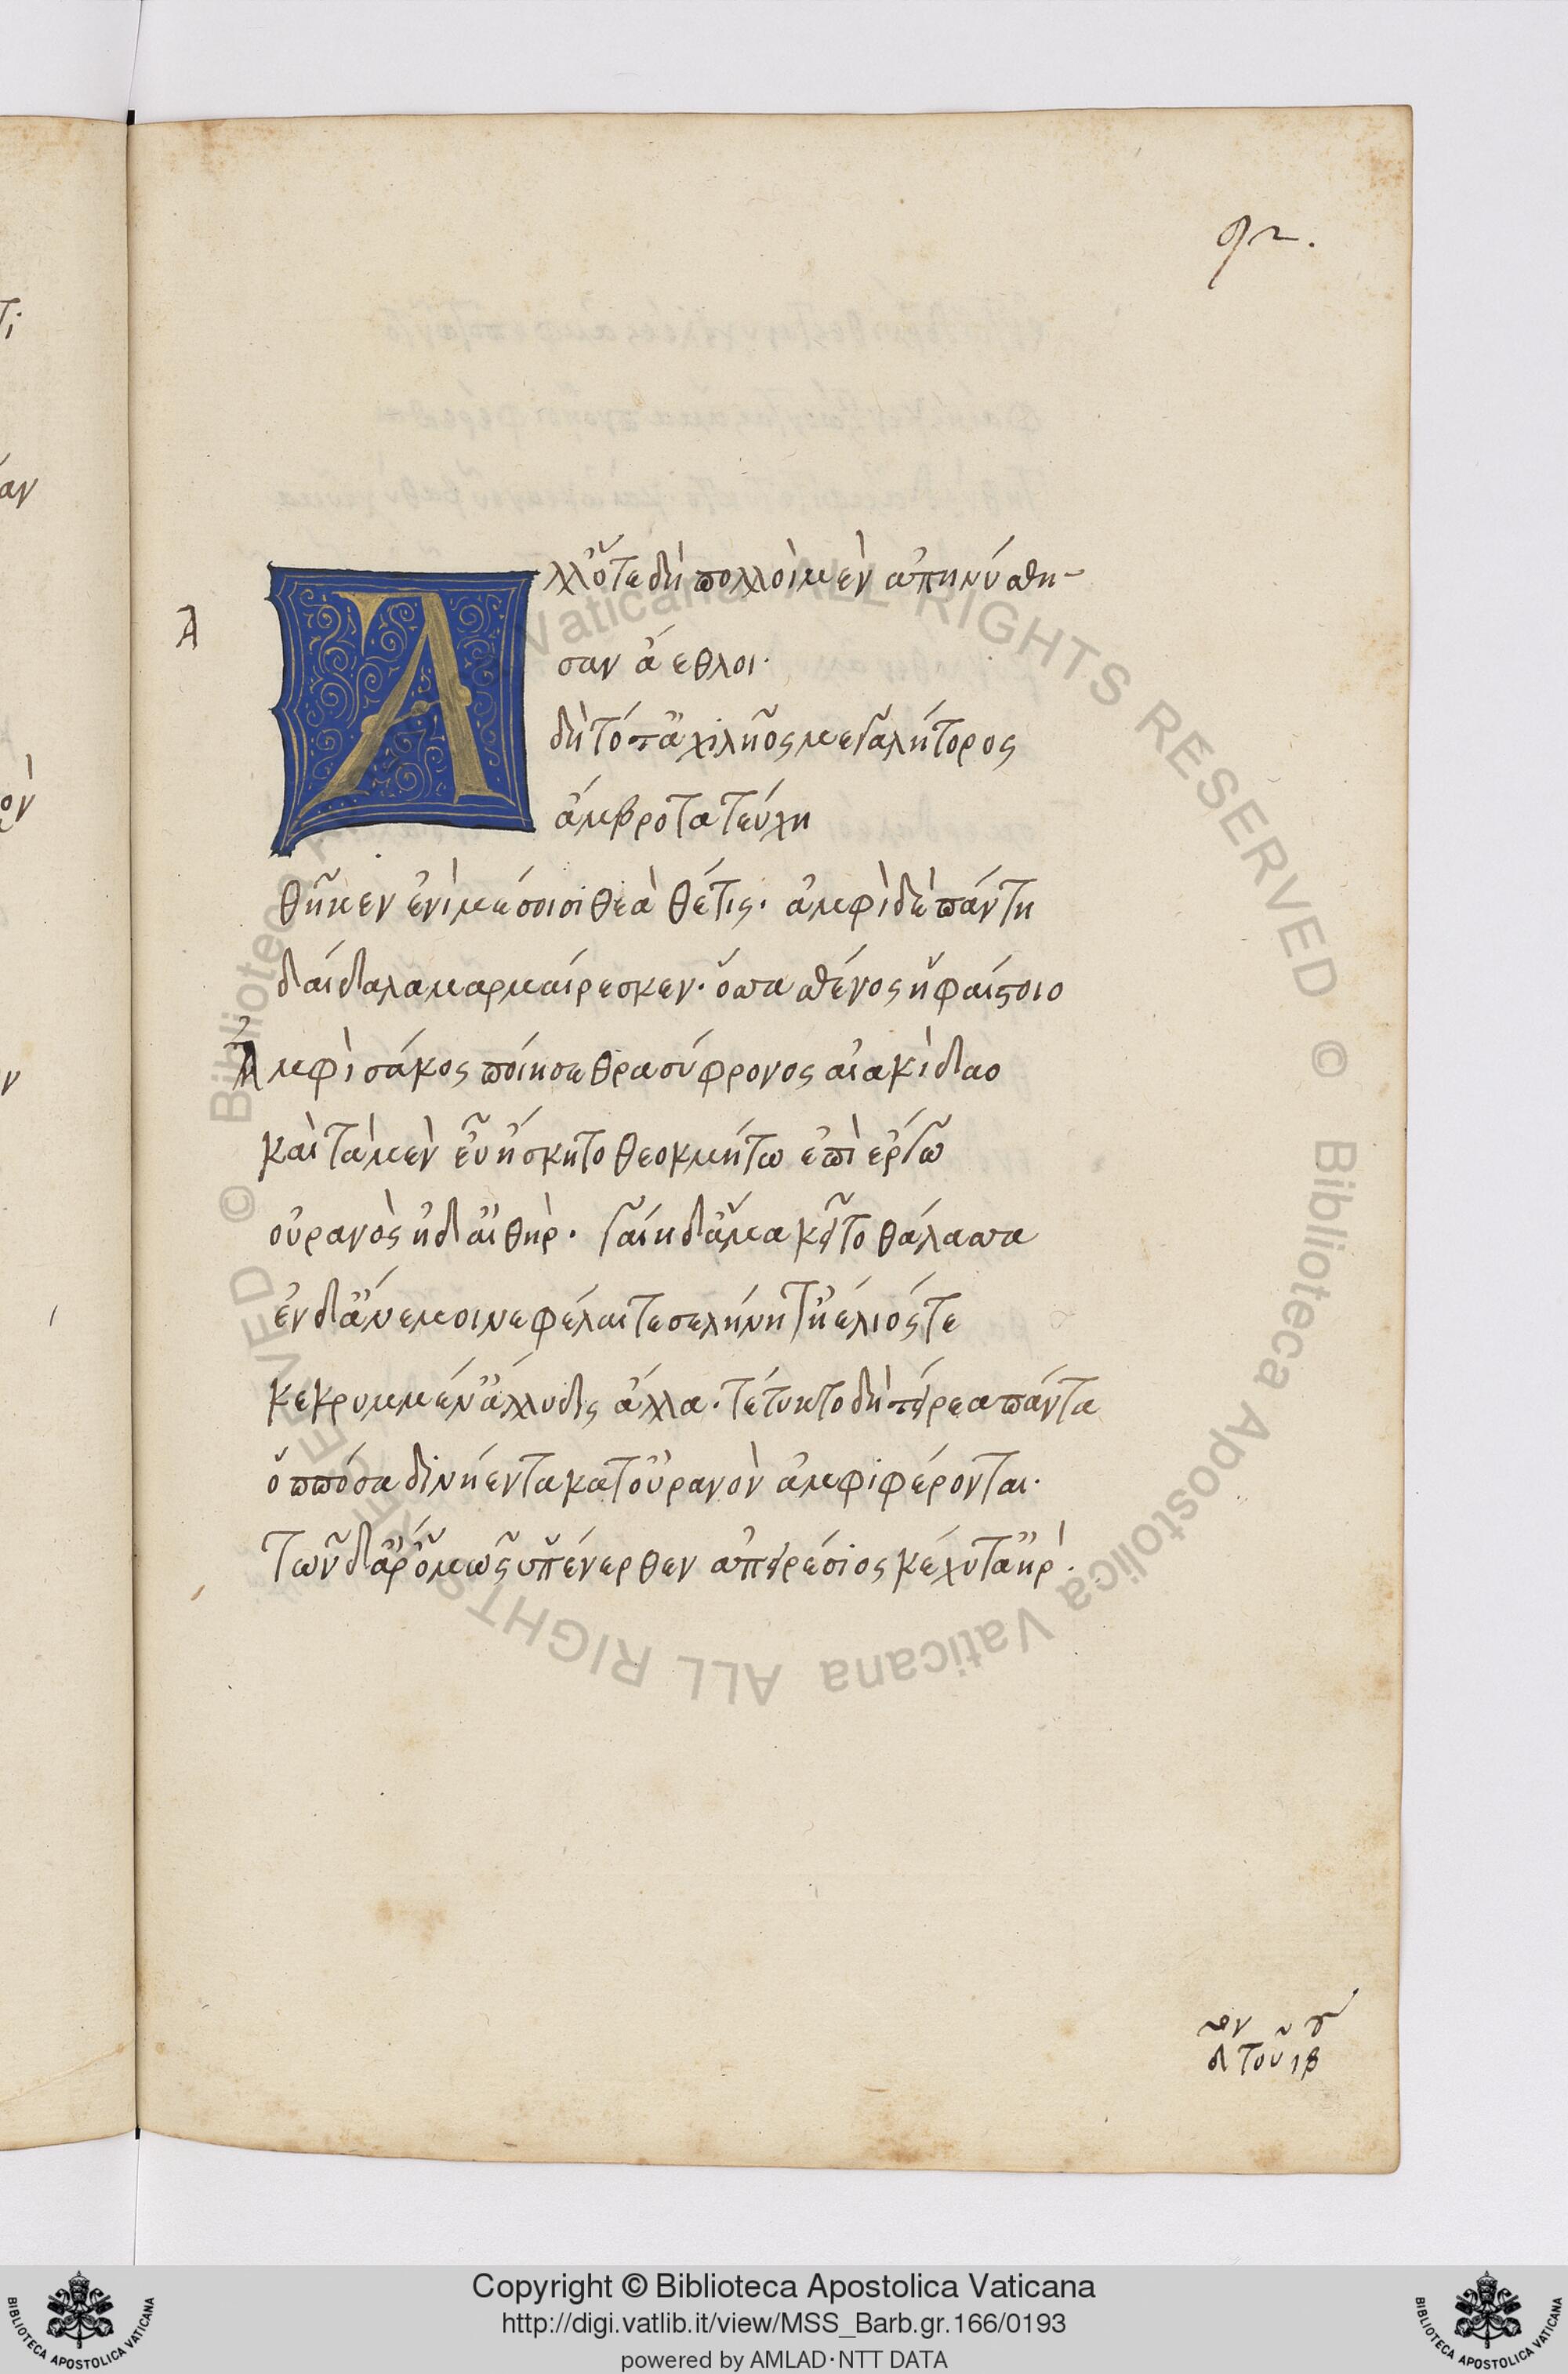 92.
Ἀλλ' ὅτε δὴ πολλοὶ μὲν ἀπηνύσθη-
σαν ἄεθλοι·
δὴ τότ' ἀχιλῆος μεγαλήτορος
ἄμβροτα τεύχη
θῆκεν ἐνὶ μέσοισι θεὰ θέτις· ἀμφὶ δὲ πάντη
δαίδαλα μαρμαίρεσκεν· ὅσσα σθένος ἡφαίστοιο
Ἀμφὶ σάκος ποίησε θρασύφρονος αἰακίδαο
καὶ τὰ μὲν εὖ ἤσκητο θεοκμήτω ἐπὶ ἔργω
οὐρανὸς ἠδ' αἰθὴρ· γαίη δ' ἅμα κεῖτο θάλασσα
ἐν δ' ἄνεμοι νεφέλαι τε σελήνη τ' ἠέλιός τε
κεκριμμέν' ἄλλυδις ἄλλα· τέτυκτο δὴ τείρεα πάντα
ὅππόσα δινήεντα κατ' οὐρανὸν ἀμφιφέρονται·
τῶν δ' ἄρ' ὅμῶς ὑπένερθεν ἀπειρέσιος κέχυτ' ἀὴρ·
Α
Copyright © Biblioteca Apostolica Vaticana
http://digi.vatlib.it/view/MSS_Barb.gr.166/0193
powered by AMLAD·NTT DATA
BIBLIOTECA APOSTOLICA VATICANA
BIBLIOTECA APOSTOLICA VATICANA
© Biblioteca Apostolica Vaticana ALL RIGHTS RESERVED © Biblioteca Apostolica Vaticana ALL RIGHTS RESERVED